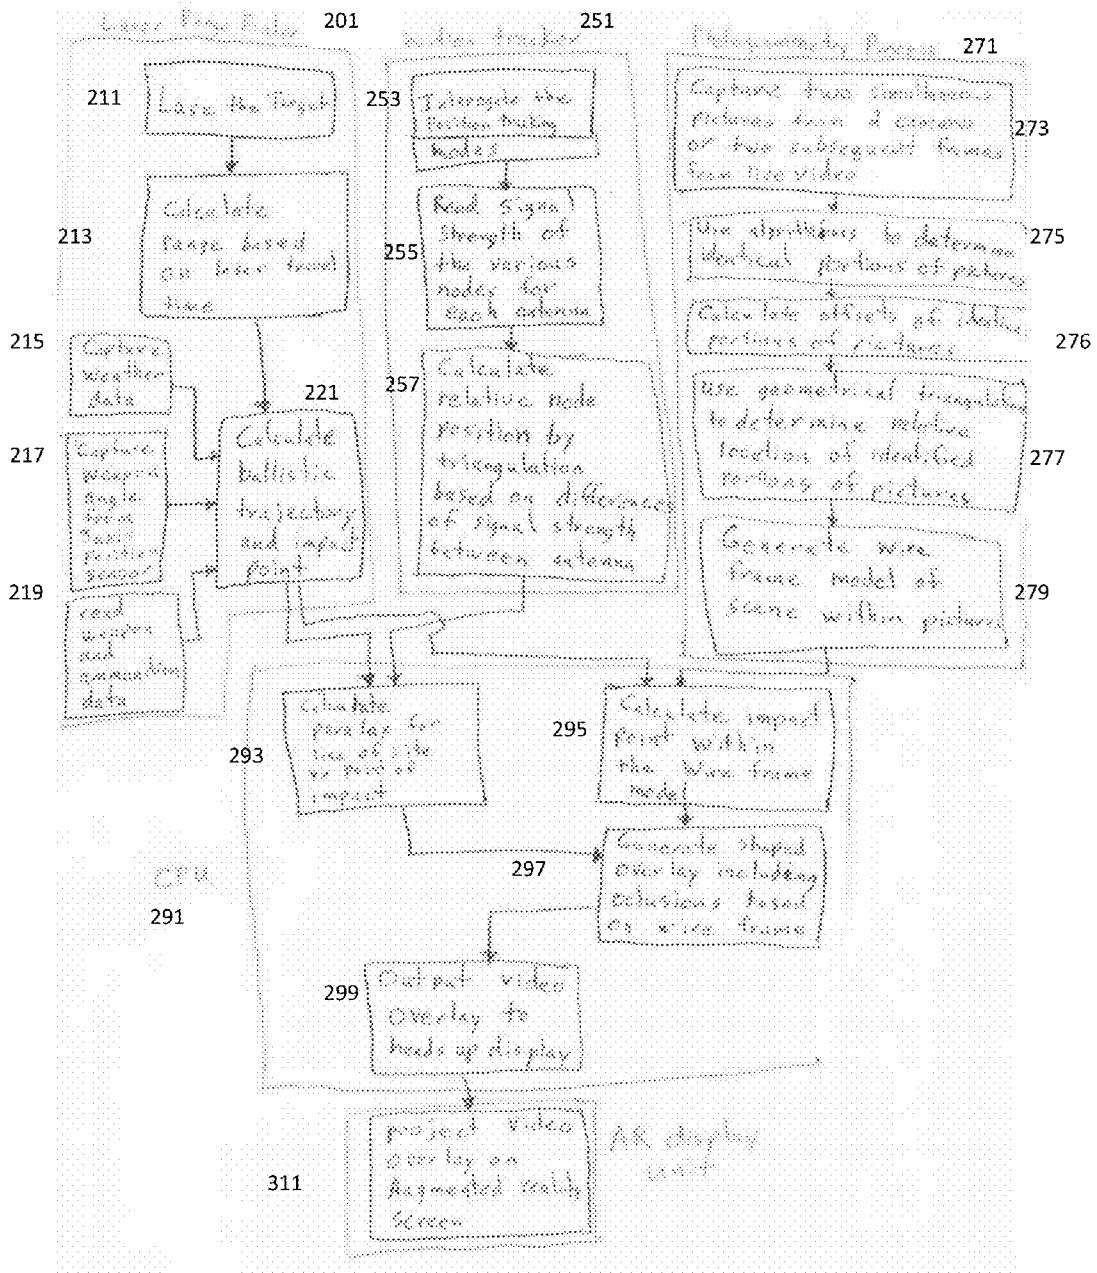 Laser Range Finder 201
211
Lase the Target
213
Calculate
range based
on laser travel
time
215
Capture
weather
data
217
Capture
weapon
angle
from
position
sensor
219
read
weapon
and
ammunition
data
221
Calculate
ballistic
trajectory
and impact
point
tracker
251
253
Interrogate the
Position
Nodes
255
Read Signal
Strength of
the various
nodes for
each antenna
257
Calculate
relative node
position by
triangulation
based on differences
of signal strength
between antenna
Process 271
Capture two simultaneous
pictures from 2 cameras
or two subsequent frames
from live video
273
Use algorithms to determine
identical portions of pictures
275
Calculate offsets of
portions of pictures
276
Use geometrical triangulation
to determine relative
location of identified
portions of pictures
277
Generate wire
frame model of
scene within pictures
279
293
Calculate
paralax for
line of site
vs point of
impact
295
Calculate impact
point within
the wire frame
model
297
Generate shaped
overlay including
oclusions based
on wire frame
CPU
291
299
Output video
Overlay to
heads up display
311
project Video
overlay on
Augmented reality
Screen
AR display
unit